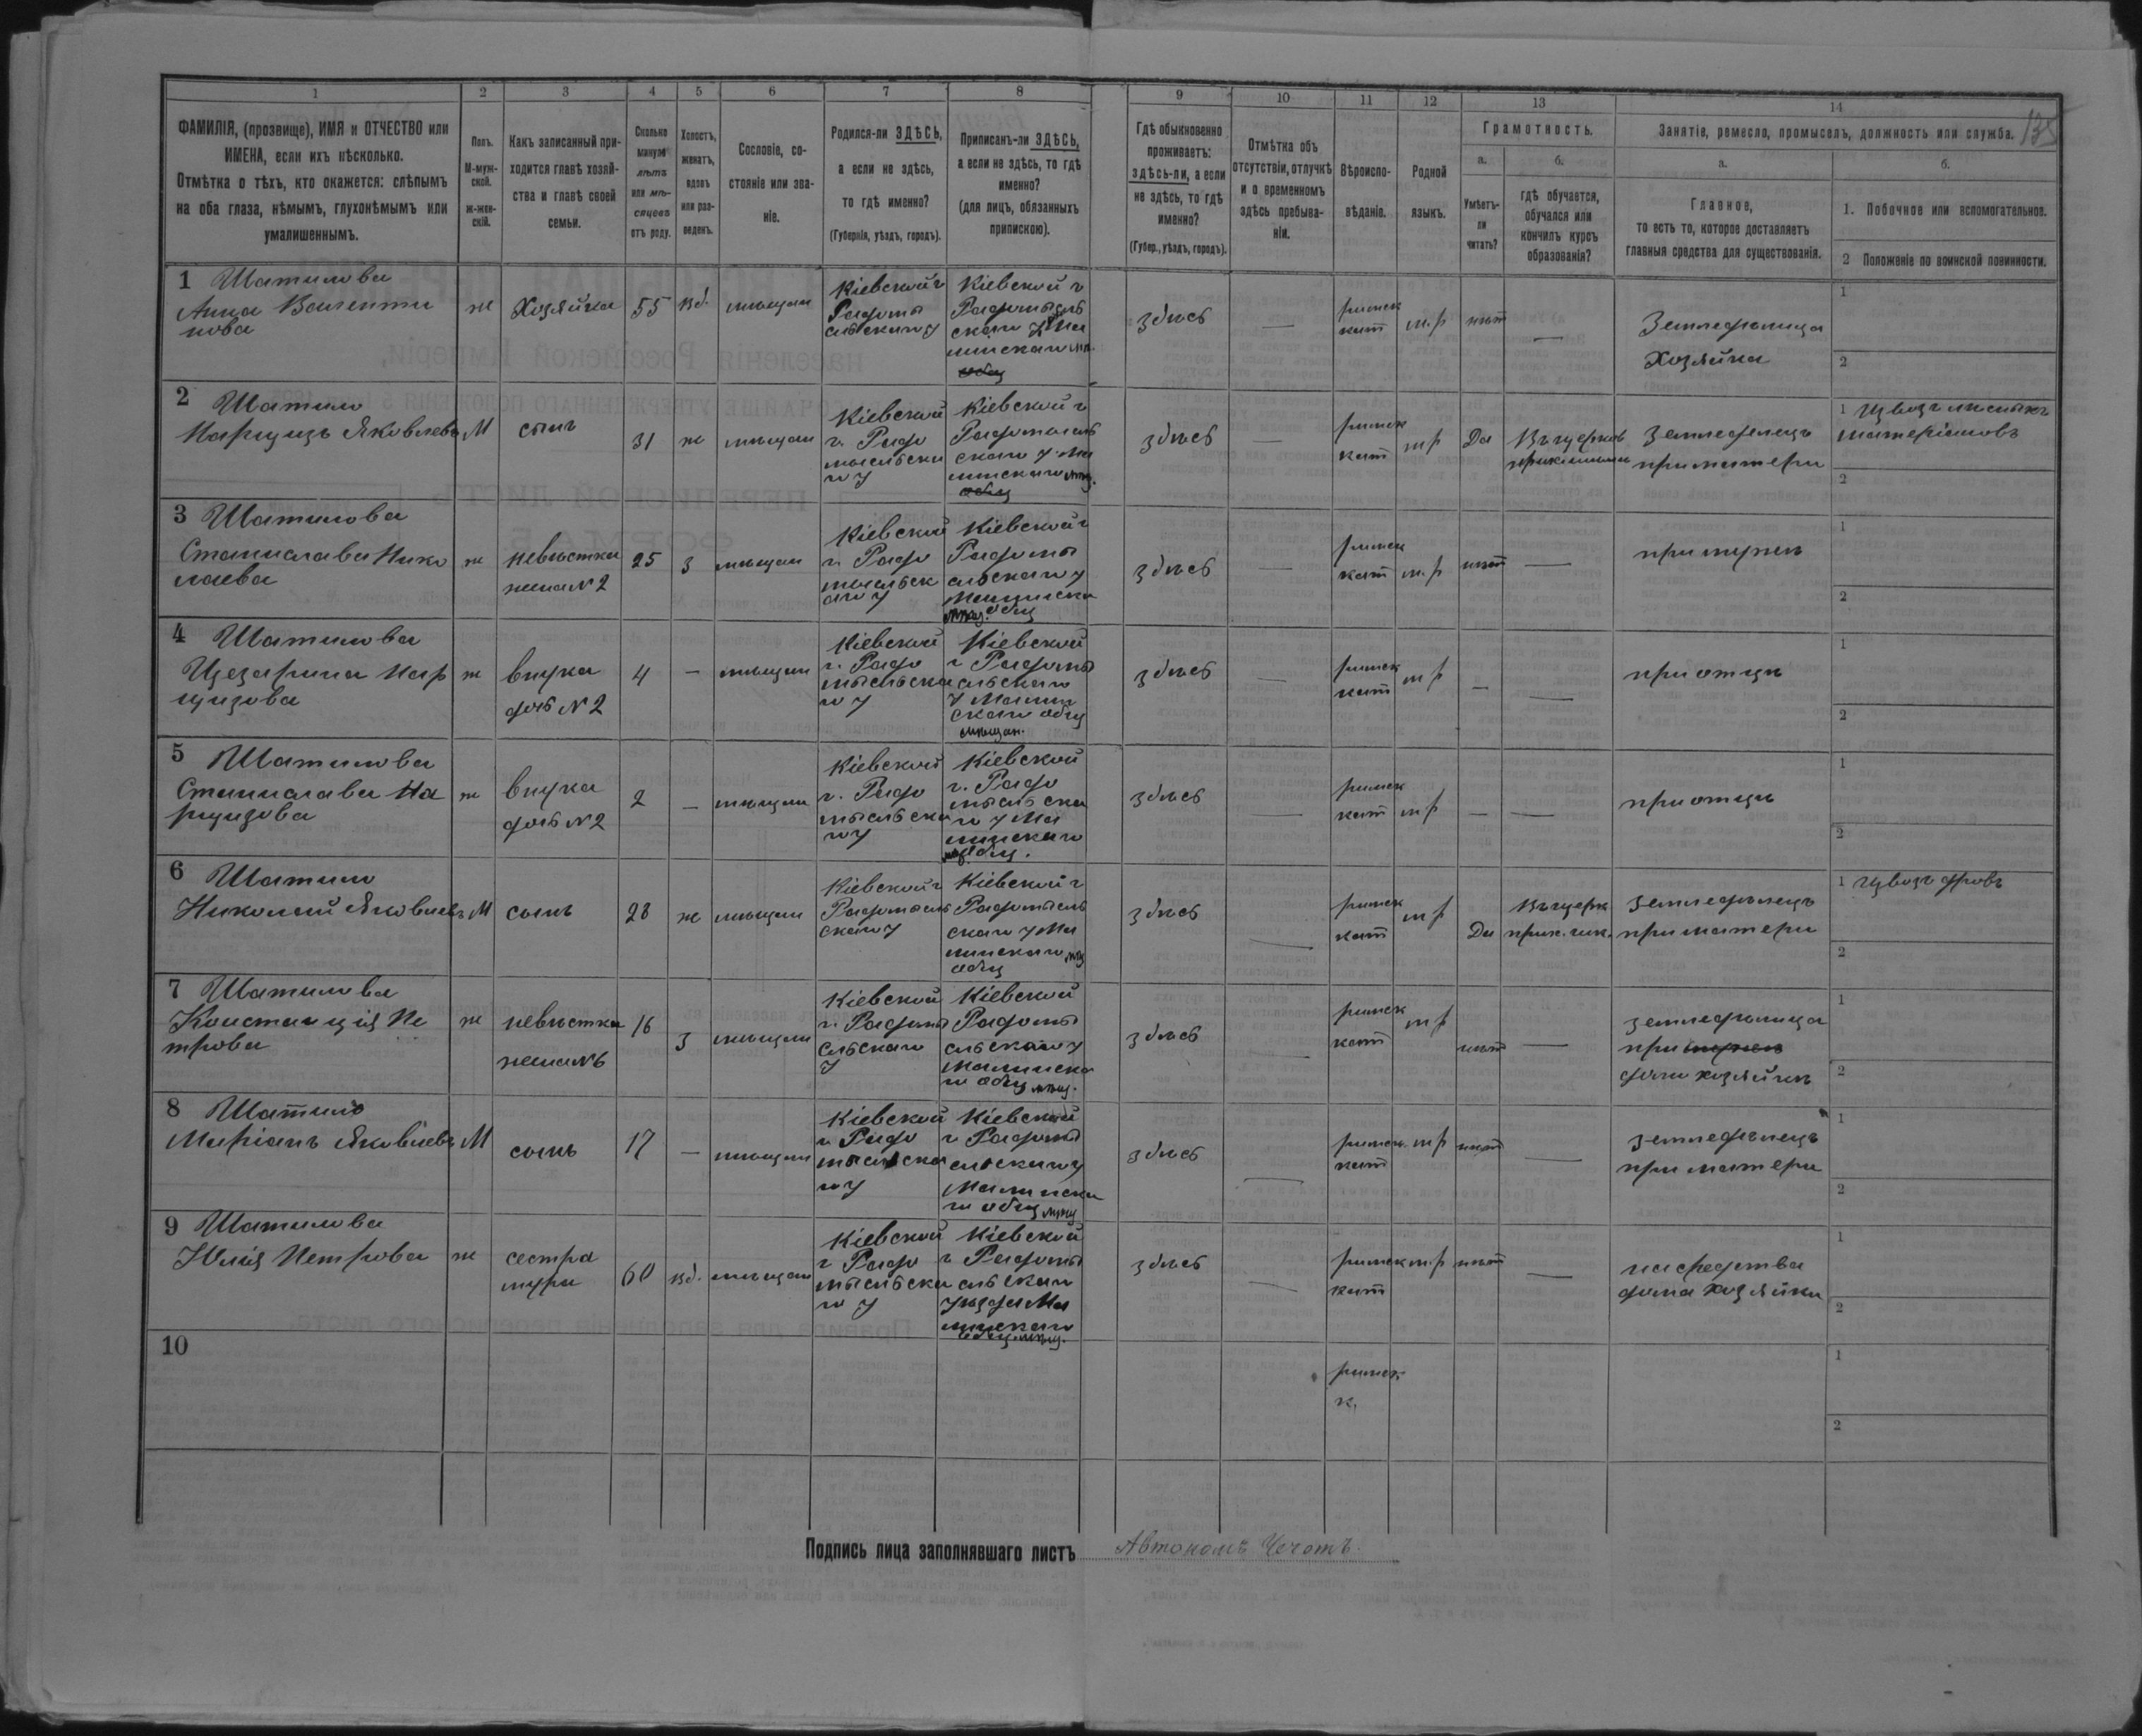 1 2 3 4 5 6 7 8 9 10 11 12 13 14
135
ФАМИЛІЯ, (прозвище), ИМЯ и ОТЧЕСТВО или
ИМЕНА, если ихъ нѣсколько.
Отмѣтка о тѣхъ, кто окажется: слѣпымъ
на оба глаза, нѣмымъ, глухонѣмымъ или
умалишеннымъ.
Полъ.
М-муж-
ской.
ж-жен-
скій.
Какъ записанный при-
ходится главѣ хозяй-
ства и главѣ своей
семьи.
Сколько
минуло
лѣтъ
или мѣ-
сяцевъ
отъ роду.
Холостъ,
женатъ,
вдовъ
или раз-
веденъ.
Сословіе, со-
стояніе или зва-
ніе.
Родился-ли ЗДѢСЬ,
а если не здѣсь,
то гдѣ именно?
(Губернія, уѣздъ, городъ).
Приписанъ-ли ЗДѢСЬ,
а если не здѣсь, то гдѣ
именно?
(для лицъ, обязанныхъ
припискою).
Гдѣ обыкновенно
проживаетъ:
здѣсь-ли, а если
не здѣсь, то гдѣ
именно?
(Губер., уѣздъ, городъ).
Отмѣтка объ
отсутствіи, отлучкѣ
и о временномъ
здѣсь пребыва-
ніи.
Вѣроиспо-
вѣданіе.
Родной
языкъ.
Грамотность.
а.
Умѣетъ-
ли
читать?
б.
гдѣ обучается,
обучался или
кончилъ курсъ
образованія?
Занятіе, ремесло, промыселъ, должность или служба.
а.
Главное,
то есть то, которое доставляетъ
главныя средства для существованія.
б.
1. Побочное или вспомогательное.
2 Положеніе по воинской повинности.
1 Шатилова
Анна Валенти
нова
ж
Хозяйка
55
вд.
мѣщан
Кіевской г
Радомы
сльскаго у
Кіевской г
Радомысль
скаго у Ма
линскаго мщ.
общ
здѣсь
—
римск
кат
п.р
нѣт
—
Земледѣлица
Хозяйка
1
2
2 Шатило
Нарцизъ Яковлевъ
М
сынъ
31
ж
мѣщан
Кіевской
г. Радо
мысльска
го у
Кіевской г
Радомысль
скаго у. Ма
линскаго мѣщ.
общ
здѣсь
—
римск
кат
п р
Да
Въ церков
приход школѣ
Земледѣлецъ
при матери
1 Извозъ лѣсныхъ
матеріаловъ
2
3 Шатилова
Станислава Нико
лаева
ж
невѣстка
жена N 2
25
З
мѣщан
Кіевской
г. Радо
мысльск
аго у
Кіевской г
Радомы
сльскаго у
Малинска
мѣщ. общ
здѣсь
—
римск
кат
п. р
нѣт
—
при мужѣ
1
2
4 Шатилова
Цезарина Нар
цизова
ж
внучка
дочь N 2
4
—
мѣщан
Кіевской
г. Радо
мысльска
го у
Кіевской
г Радомы
сльскаго
у Малин
скаго общ
мѣщан.
здѣсь
—
римск
кат
п р
—
—
при отцѣ
1
2
5 Шатилова
Станислава На
рцизова
ж
внучка
дочь N 2
2
—
мѣщан
Кіевской
г. Радо
мысльска
го у
Кіевской
г. Радо
мысльска
го у Ма
линскаго
мщ. общ.
здѣсь
—
римск
кат
п р
—
—
при отцѣ
1
2
6 Шатило
Николай Яковлевъ
М
сынъ
28
ж
мѣщан
Кіевской г
Радомысль
скаго у
Кіевской г
Радомысль
скаго у Ма
линскаго мщ
общ
здѣсь
—
римск
кат
п р
Да
Въ церк
прих. шк.
Земледѣлецъ
при матери
1 Извозъ дровъ
2
7 Шатилова
Констанція Пе
трова
ж
невѣстка
жена N6
16
З
мѣщан
Кіевской
г. Радомы
сльскаго
у
Кіевской
Радомы
сльскаго у
Малинска
го общ мѣщ.
здѣсь
—
римск
кат
п р
нѣт
—
земледѣлица
при мужѣ
дома хозяйкѣ
1
2
8 Шатило
Маріанъ Яковлевъ
М
сынъ
17
—
мѣщан
Кіевской
г Радо
мысльска
го у
Кіевской
г Радомы
сльскаго у
Малинска
го общ мѣщ
здѣсь
—
римск
кат
п р
нѣт
—
земледѣлецъ
при матери
1
2
9 Шатилова
Юлія Петрова
ж
сестра
мужа
60
вд.
мѣщан
Кіевской
г Радо
мысльска
го у
Кіевской
г Радомы
сльскаго
уѣзда Ма
линскаго
общ. мѣщ.
здѣсь
—
римск
кат
п.р
нѣт
—
на средства
дома хозяйки
1
2
10
римск
к.
1
2
Подпись лица заполнявшаго листъ Автономъ Чечотъ.